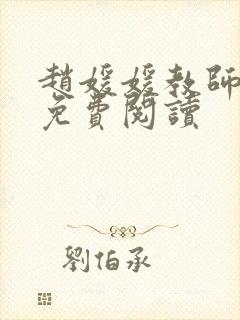 趙媛媛教師
免費閱讀
劉伯承